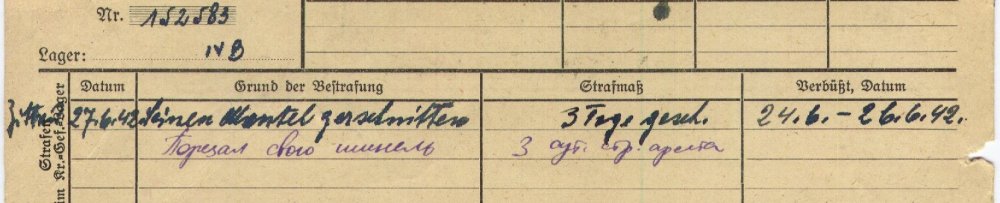 Nr. 152583
Lager: IV B
Datum Grund der Bestrafung Strafmaß Verbüßt, Datum
27.6.42. Seinen Mantel zerschnitten 3 Tage gesch. 24.6. – 26.6.42.
Порезал свою шинель 3 сут. стр. ареста
Strafen
im Kr.-Gef.-Lager